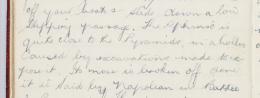 off your boots & slide down a low
slipping passage. The Sphinx is
quite close to the Pyramids, in a hollow
caused by excavations made to ex-
pose it. Its nose is broken off done
it is said by Napoleon in